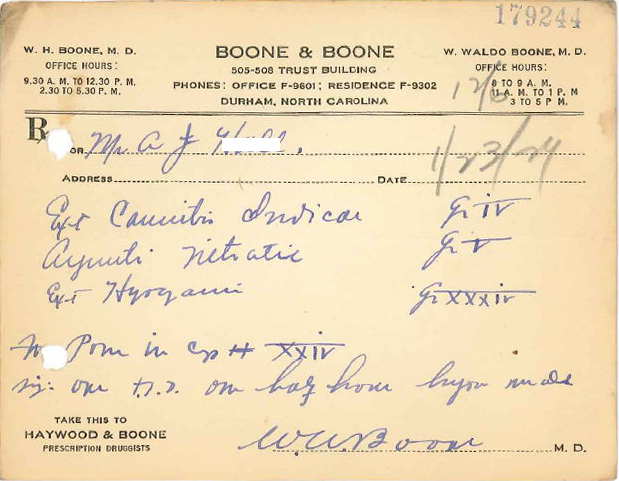 179244
W. H. BOONE, M. D.
OFFICE HOURS:
9.30 A. M. TO 12.30 P. M.
2.30 TO 5.30 P. M.
BOONE & BOONE
505-508 TRUST BUILDING
PHONES: OFFICE F-9601; RESIDENCE F-9302
DURHAM, NORTH CAROLINA
W. WALDO BOONE, M. D.
OFFICE HOURS:
8 TO 9 A. M.
11 A. M. TO 1 P. M
3 TO 5 P. M.
R
OR Mr A J
1/23/29
ADDRESS DATE
Ext Cannibis Indicae Gr IV
Argenti Nitratis Gr V
Ext Hyosyami Gr XXXIV
Pone in Caps # XXIV
Sig: one t.i.d. one half hour before meals
TAKE THIS TO
HAYWOOD & BOONE
PRESCRIPTION DRUGGISTS
W.W. Boone M. D.